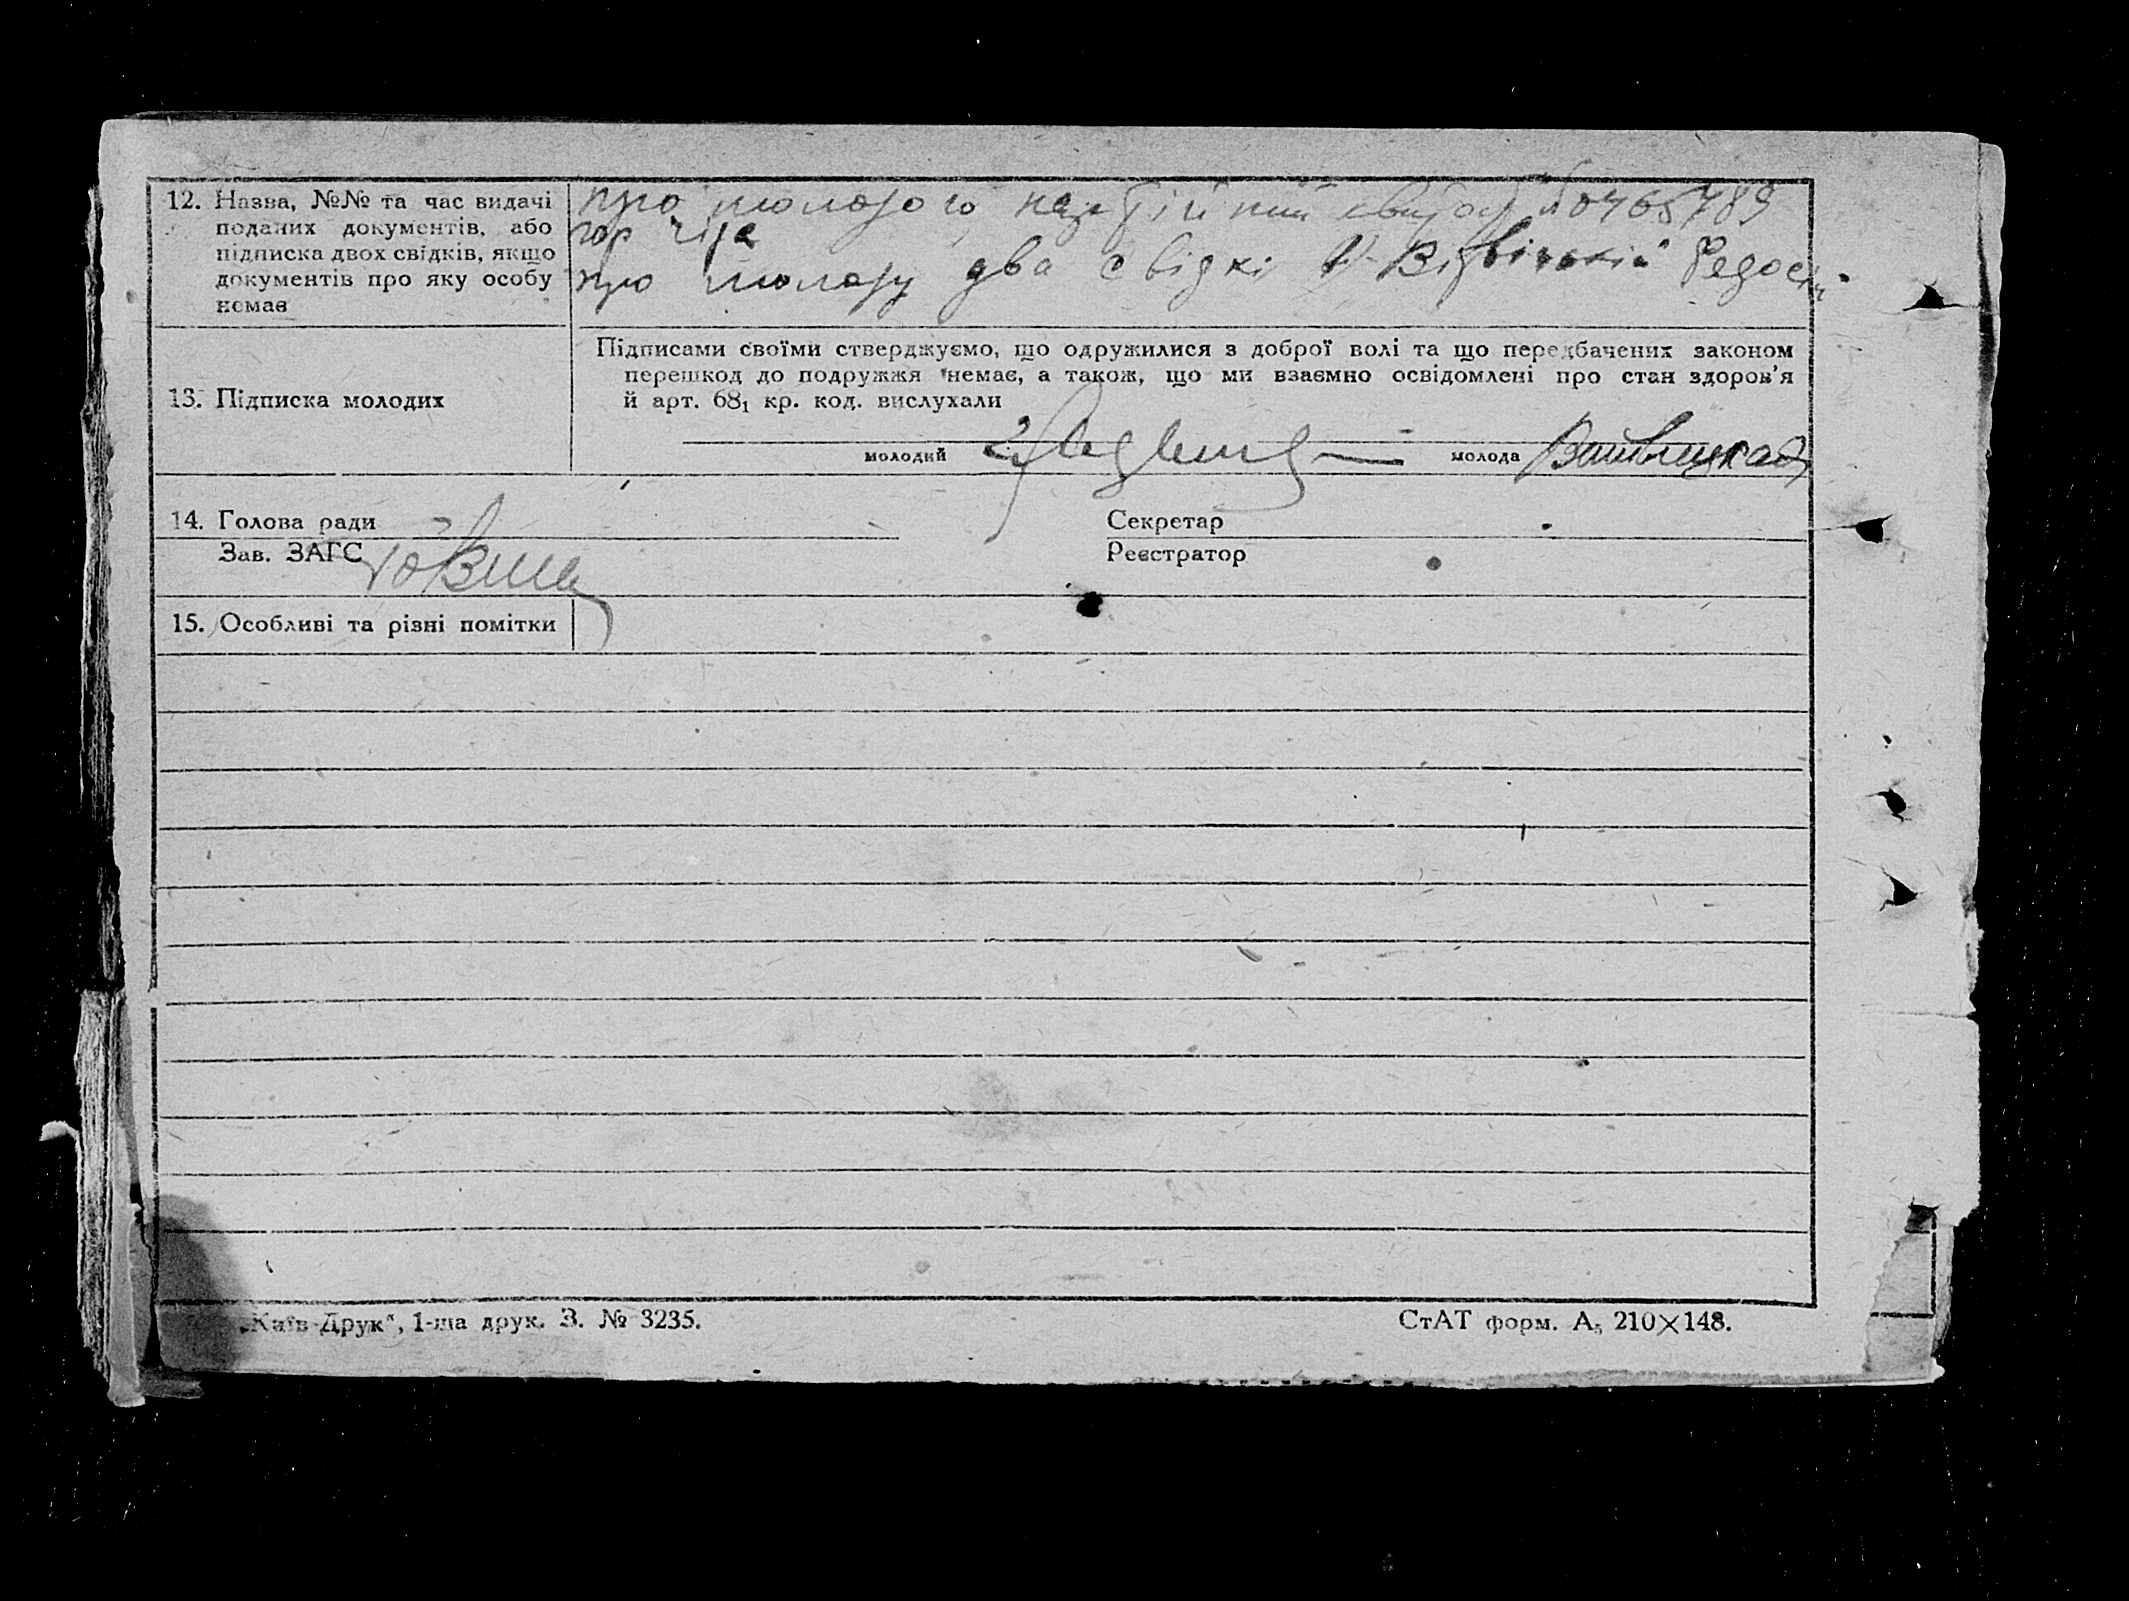 12. Назва, №№ та час видачі
поданих документів, або
підписка двох свідків, якщо
документів про яку особу
немає
про молодого
про молоду два свідкі
13. Підписка молодих
Підписами своїми стверджуємо, що одружилися з доброї волі та що передбачених законом
перешкод до подружжя немає, а також, що ми взаємно освідомлені про стан здоров'я
й арт. 68₁ кр. код. вислухали
молодий молода
14. Голова ради Секретар
Зав. ЗАГС Реєстратор
15. Особливі та різні помітки
„Київ-Друк", 1-ша друк. З. № 3235. СтАТ форм. А₅ 210×148.